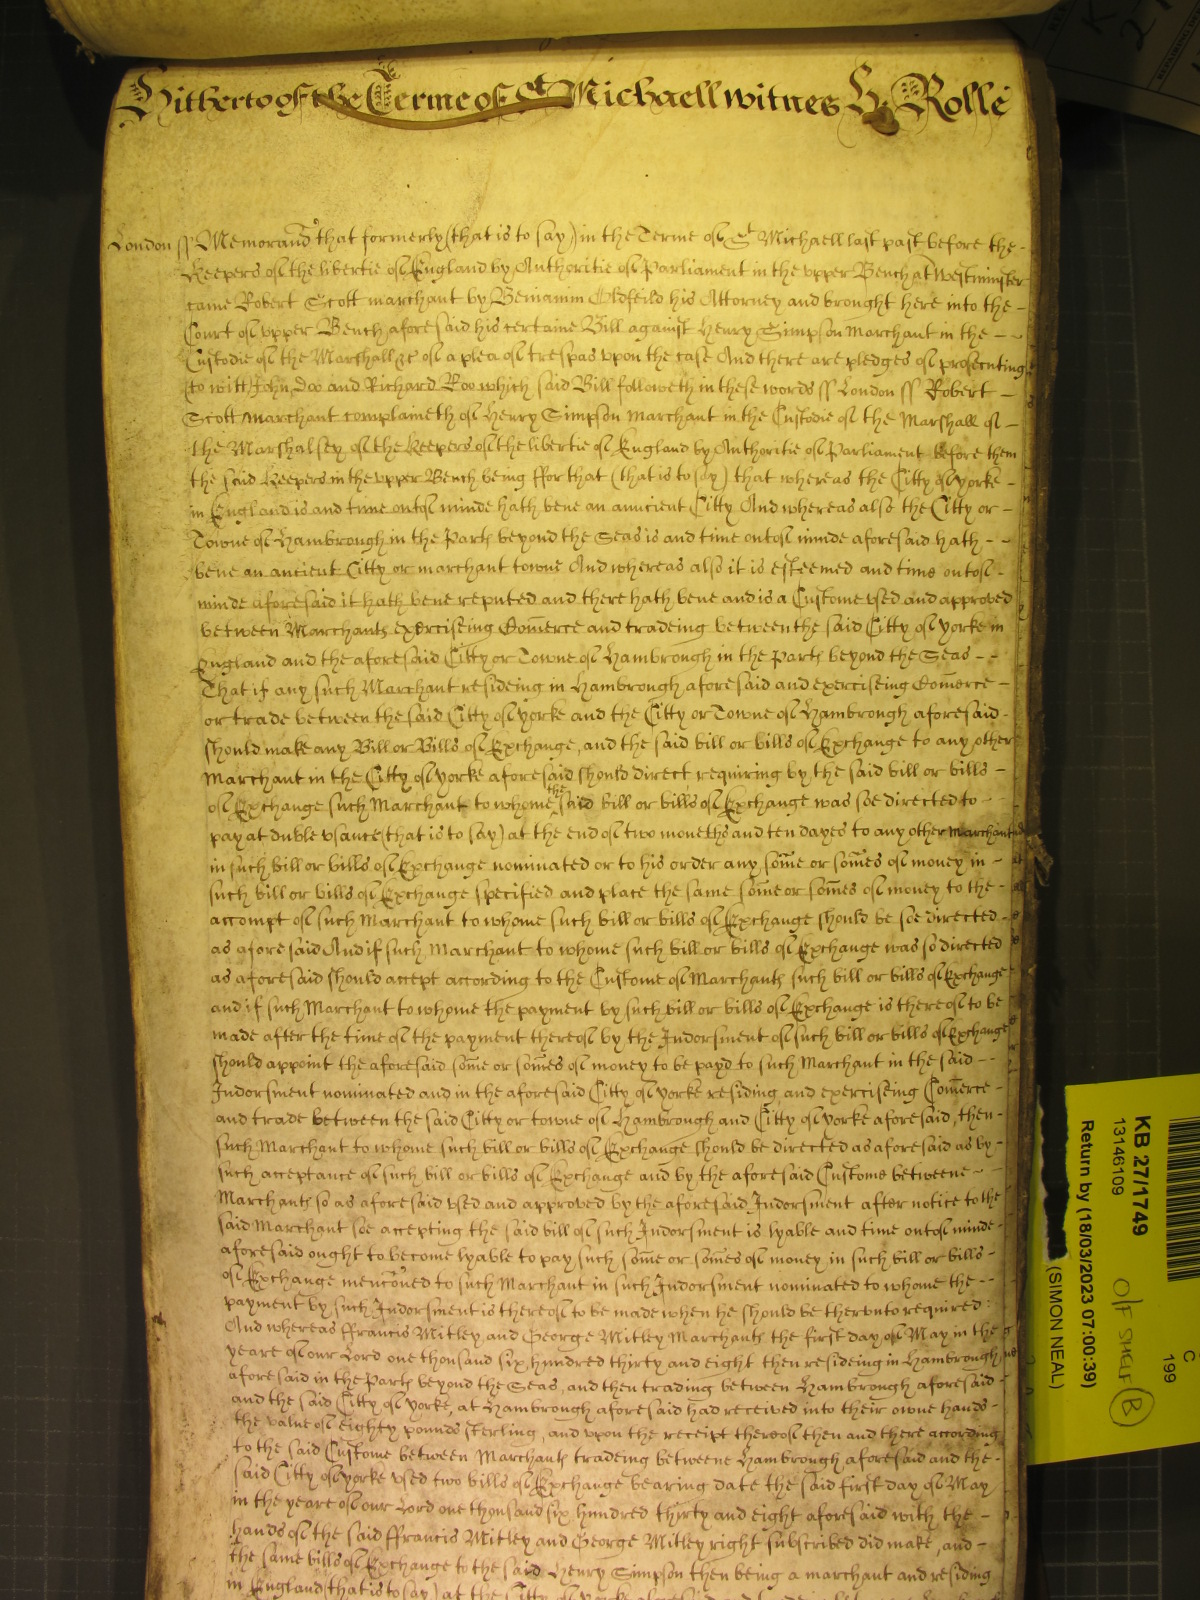 Hitherto of the Terme of St Michaell witnes H: Rolle
London ss Memorand that formerly (that is to say) in the Terme of St Michaell last past before the
Keepers of the libertie of England by Authoritie of Parliament in the upper Bench at Westminster
came Robert Scott marchant by Beniamin Oldfeild his Attorney and brought here into the
Court of upper Bench aforesaid his certaine Bill against Henry Simpson Marchant in the
Custodie of the Marshall &c of a plea of trespas upon the case And there are pledges of prosecuting
(to witt) John Doo and Richard Roo which said Bill followeth in these words ss London ss Robert
Scott marchant complaineth of Henry Simpson marchant in the Custodie of the Marshall of
the Marshalsey of the Keepers of the libertie of England by Authoritie of Parliament before them
the said Keepers in the upper Bench being ffor that (that is to say) that whereas the Citty of yorke
in England is and time out of minde hath bene an auncient Citty And whereas alse the Citty or
Towne of Hambrough in the Parts beyond the Seas is and time out of minde aforesaid hath
bene an ancient Citty or marchant towne And whereas also it is esteemed and time out of
minde aforesaid it hath bene reputed and there hath bene and is a Custome used and approved
between Marchants exerciseing Comerce and tradeing between the said Citty of yorke in
England and the aforesaid Citty or Towne of Hambrough in the Parts beyond the Seas
That if any such Marchant resideing in Hambrough aforesaid and exerciseing Comerce
or trade between the said Citty of yorke and the Citty or Towne of Hambrough aforesaid
should make any Bill or Bills of Exchange, and the said bill or bills of Exchange to any other
Marchant in the Citty of yorke aforesaid should direct requiring by the said bill or bills
of Exchange such Marchant to whome the said bill or bills of Exchange was soe directed to
pay at duble usance (that is to say) at the end of two moneths and ten dayes to any other marchant
in such bill or bills of Exchange nominated or to his order any some or somes of money in
such bill or bills of Exchange specified and place the same some or somes of money to the
accompt of such Marchant to whome such bill or bills of Exchange should be soe directed
as aforesaid And if such Marchant to whome such bill or bills of Exchange was so directed
as aforesaid should accept according to the Custome of Marchants such bill or bills of Exchange
and if such Marchant to whome the payment by such bill or bills of Exchange is thereof to be
made after the time of the payment thereof by the Indorsment of such bill or bills of Exchange
should appoint the aforesaid some or somes of money to be payd to such Marchant in the said
Indorsment nominated and in the aforesaid Citty of yorke residing and exerciseing Comerce
and trade between the said Citty or towne of Hambrough and Citty of yorke aforesaid, then
such Marchant to whome such bill or bills of Exchange should be directed as aforesaid as by
such acceptance of such bill or bills of Exchange and by the aforesaid Custome betweene
Marchants so as aforesaid used and approved by the aforesaid Indorsment after notice to the
said Marchant soe accepting the said bill of such Indorsment is lyable and time out of minde
aforesaid ought to become lyable to pay such some or somes of money in such bill or bills
of Exchange menconed to such Marchant in such Indorsment nominated to whome the
payment by such Indorsment is thereof to be made when he should be therunto required:
And whereas ffrancis Mitley and George Mitley Marchants the first day of May in the
yeare of our Lord one thousand six hundred thirty and eight then resideing in Hambrough
aforesaid in the Parts beyond the Seas, and then trading between Hambrough aforesaid
and the said Citty of yorke, at Hambrough aforesaid had received into their owne hands
the value of eighty pounds sterling, and upon the receipt thereof then and there according
to the said Custome between Marchants tradeing betweene Hambrough aforesaid and the
said Citty of yorke used two bills of Exchange bearing date the said first day of May
in the yeare of our Lord one thousand six hundred thirty and eight aforesaid with the
hands of the said ffrancis Mitley and George Mitley right subscribed did make, and
the same bills of Exchange to the said Henry Simpson then being a marchant and residing
in England (that is to say) at the Citty of yorke
KB 27/1749
13146109
Return by (18/03/2023 07:00:39)
(SIMON NEAL)
O/F SHELF B
C
199